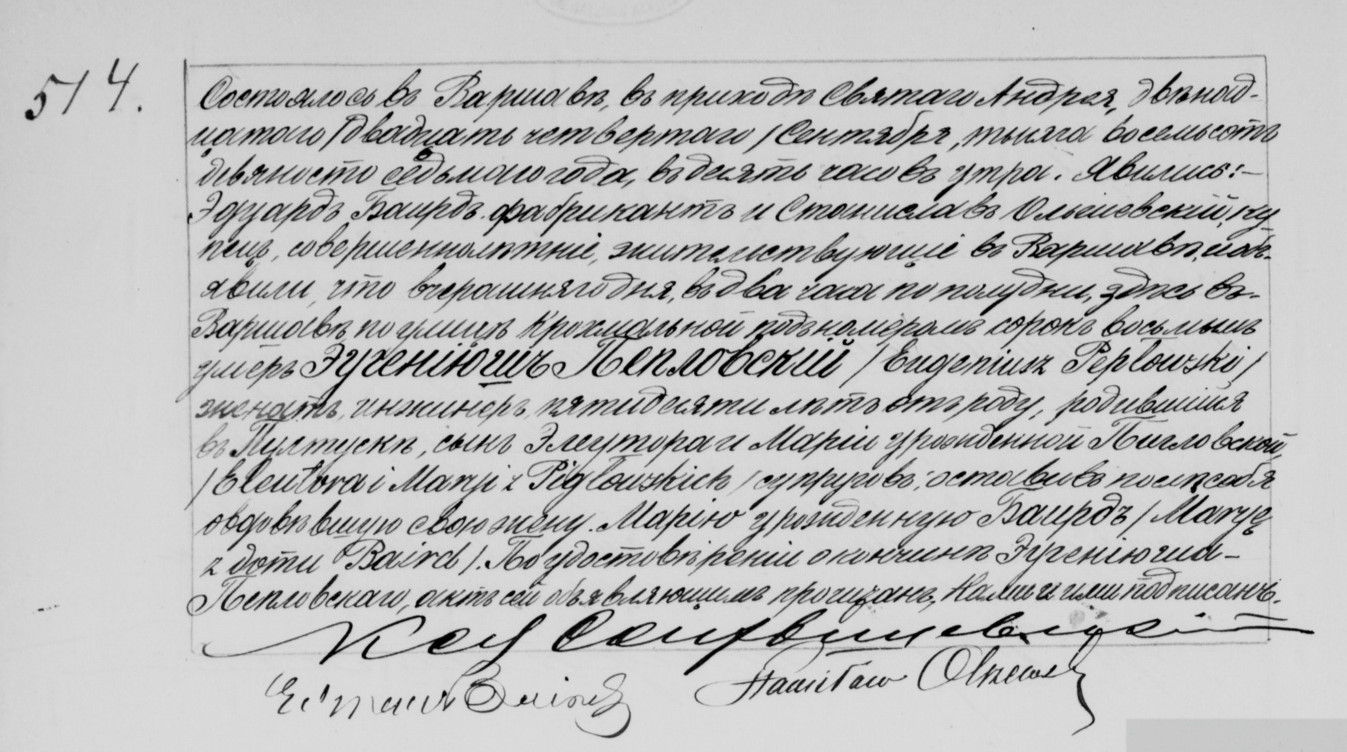 514.
Состоялось въ Варшавѣ, въ приходѣ Святаго Андрея, двѣнад-
цатого /двадцать четвертаго/ Сентября, тысяча восемьсотъ
девяносто седьмаго года, въ десять часовъ утра. Явились:-
Эдуардъ Баирдъ фабрикантъ и Станиславъ Ольшевскій, ку
пецъ, совершеннолѣтніе, жительствующіе въ Варшавѣ, и объ-
явили, что вчерашняго дня, въ два часа по полудни, здѣсь въ-
Варшавѣ по улицѣ Крохмальной подъ номеромъ сорокъ восьмымъ
умеръ Эугеніюшъ Пепловскій /Eugeniusz Pepłowski/
женатъ, инжинеръ, пятидесяти лѣтъ отъ роду, родившійся
въ Пултускѣ, сынъ Элеутора и Маріи урожденной Пигловской,
/Eleutora i Marji z Pigłowskich/ супруговъ; оставивъ послѣ себя
овдовѣвшую свою жену Марію урожденную Баирдъ /Maryę
z domu Baird/. По удостовѣреніи о кончинѣ Эугеніюша-
Пепловскаго, актъ сей объявляющимъ прочитанъ, Нами и ими подписанъ.
Stanisław Olszewski